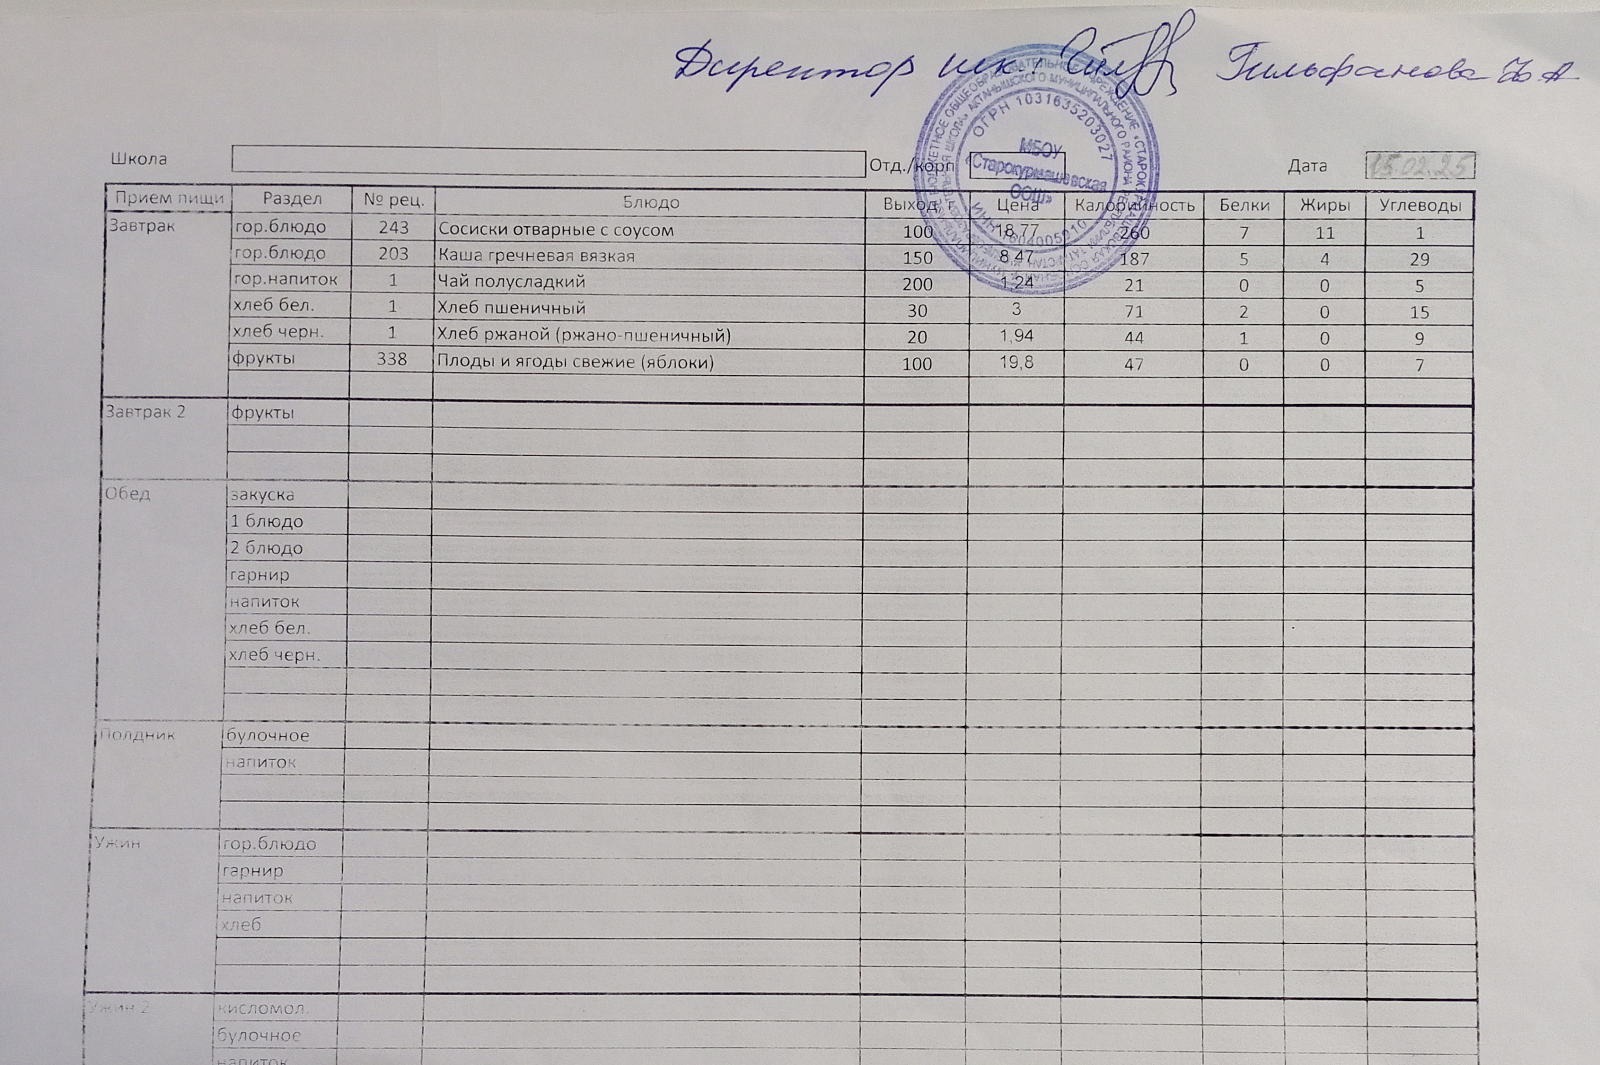 Директор шк. Гильфанова
ОГРН 1031635203027
МБОУ
«Старокурмашевская
ООШ»
Школа Отд./корп Дата 15.02.25
Прием пищи Раздел № рец. Блюдо Выход, Цена Калорийность Белки Жиры Углеводы
Завтрак гор.блюдо 243 Сосиски отварные с соусом 100 18,77 260 7 11 1
гор.блюдо 203 Каша гречневая вязкая 150 8,47 187 5 4 29
гор.напиток 1 Чай полусладкий 200 1,24 21 0 0 5
хлеб бел. 1 Хлеб пшеничный 30 3 71 2 0 15
хлеб черн. 1 Хлеб ржаной (ржано-пшеничный) 20 1,94 44 1 0 9
фрукты 338 Плоды и ягоды свежие (яблоки) 100 19,8 47 0 0 7
Завтрак 2 фрукты
Обед закуска
1 блюдо
2 блюдо
гарнир
напиток
хлеб бел.
хлеб черн.
Полдник булочное
напиток
Ужин гор.блюдо
гарнир
напиток
хлеб
Ужин 2 кисломол.
булочное
напиток